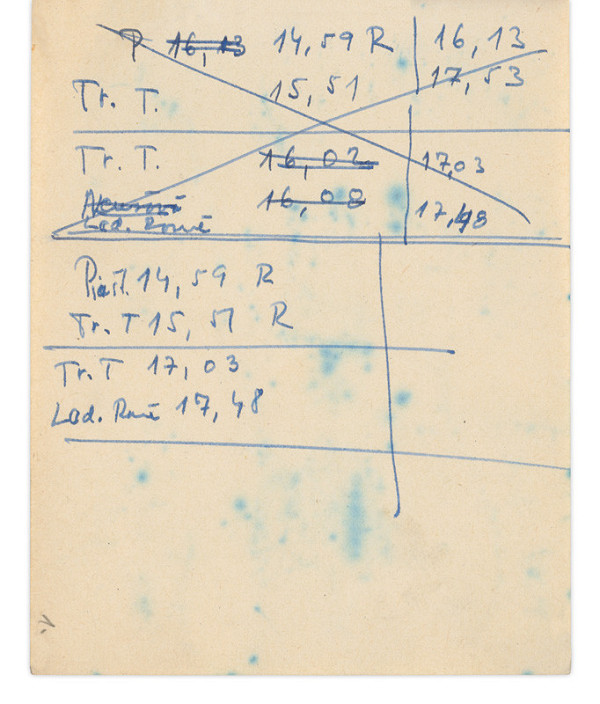 P 16,13 14,59 R 16,13
Tr. T. 15,51 17,53
Tr. T. 16,02 17,03
16,08 17,48
Lad. Rovné
Piešť. 14,59 R
Tr. T 15,51 R
Tr. T 17,03
Lad. Rovné 17,48